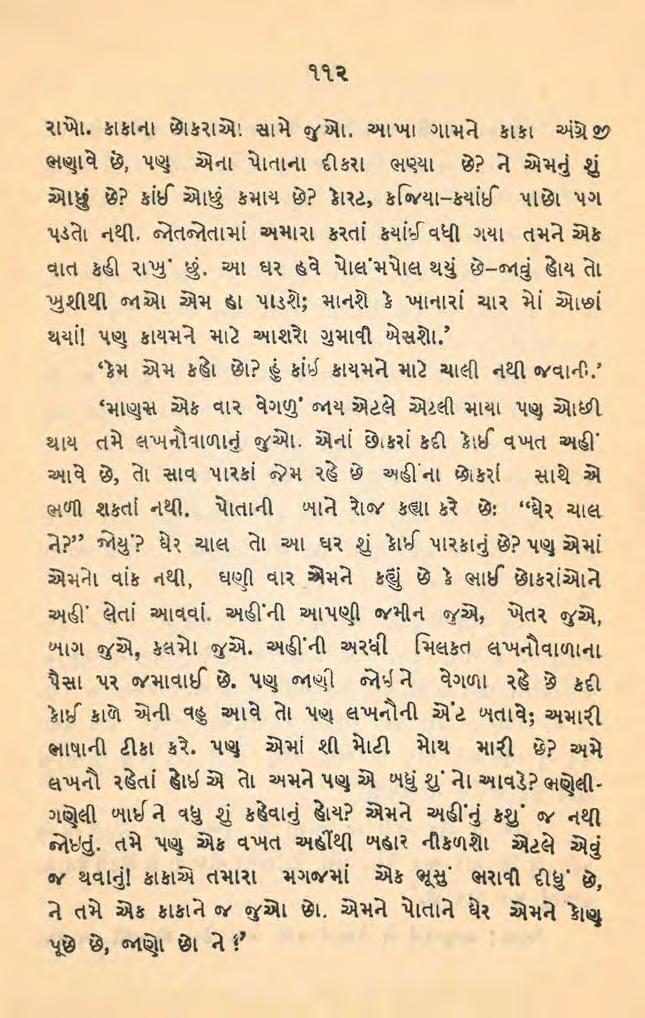 ૧૧૨
રાખો. કાકાના છોકરાઓ સામે જુઓ. આખા ગામને કાકા અંગ્રેજી
ભણાવે છે, પણ એના પોતાના દીકરા ભણ્યા છે? ને એમનું શું
ઓછું છે? કાંઈ ઓછું કમાય છે? કોરટ, કજિયા–કયાંઈ પાછો પગ
પડતો નથી. જોતજોતામાં અમારા કરતાં કયાંઈ વધી ગયા તમને એક
વાત કહી રાખું છું. આ ઘર હવે પોલંમપોલ થયું છે–જાવું હોય તો
ખુશીથી જાઓ એમ હા પાડશે; માનશે કે ખાનારાં ચાર મોં ઓછાં
થયાં! પણ કાયમને માટે આશરો ગુમાવી બેસશો.’
‘કેમ એમ કહો છો? હું કાંઈ કાયમને માટે ચાલી નથી જવાની.’
‘માણસ એક વાર વેગળું જાય એટલે એટલી માયા પણ ઓછી
થાય તમે લખનૌવાળાનું જુઓ. એનાં છોકરાં કદી કોઈ વખત અહીં
આવે છે, તો સાવ પારકાં જેમ રહે છે અહીંના છોકરાં સાથે એ
ભળી શકતાં નથી. પોતાની બાને રોજ કહ્યા કરે છે: “ઘેર ચાલ
ને?” જોયું? ઘેર ચાલ તો આ ઘર શું કોઈ પારકાનું છે? પણ એમાં
એમનો વાંક નથી, ઘણી વાર એમને કહ્યું છે કે ભાઈ છોકરાંઓને
અહીં લેતાં આવવાં. અહીંની આપણી જમીન જુએ, ખેતર જુએ,
બાગ જુએ, કલમો જુએ. અહીંની અરધી મિલકત લખનૌવાળાના
પૈસા પર જમાવાઈ છે. પણ જાણી જોઈને વેગળા રહે છે કદી
કોઈ કાળે એની વહુ આવે તો પણ લખનૌની એંટ બતાવે; અમારી
ભાષાની ટીકા કરે. પણ એમાં શી મોટી મોથ મારી છે? અમે
લખનૌ રહેતાં હોઈએ તો અમને પણ એ બધું શું નો આવડે? ભણેલી-
ગણેલી બાઈને વધુ શું કહેવાનું હોય? એમને અહીંનું કશું જ નથી
જોઇતું. તમે પણ એક વખત અહીંથી બહાર નીકળશો એટલે એવું
જ થવાનું! કાકાએ તમારા મગજમાં એક ભૂસું ભરાવી દીધું છે,
ને તમે એક કાકાને જ જુઓ છો. એમને પોતાને ઘેર એમને કોણ
પૂછે છે, જાણો છો ને?’